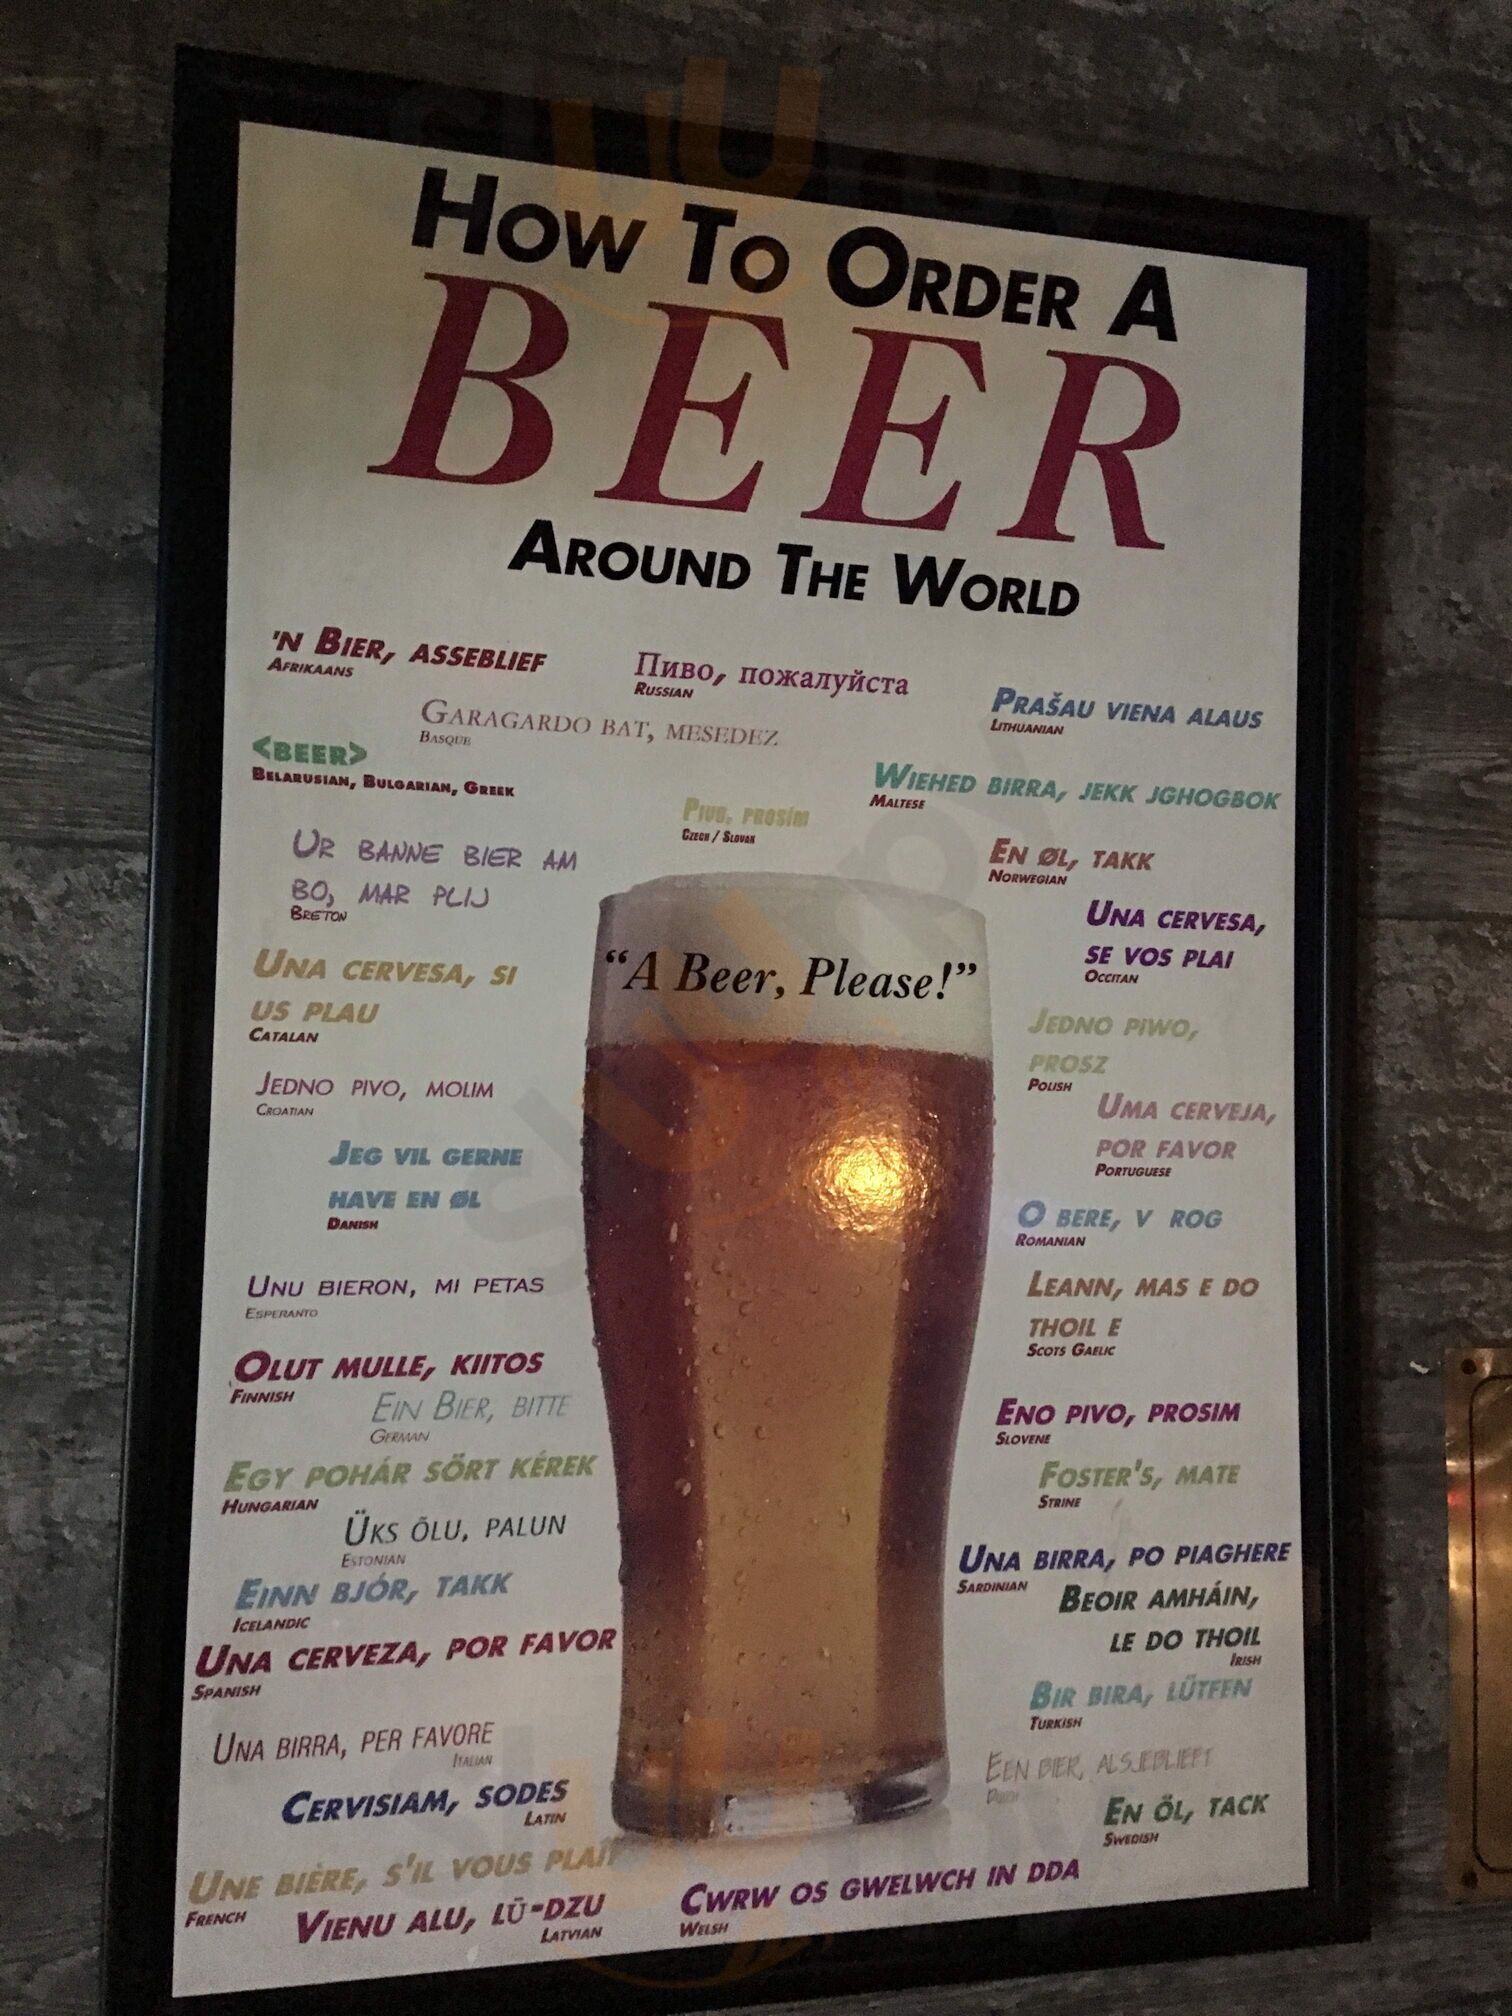 How To Order A
BEER
Around The World
'n Bier, asseblief
Afrikaans
Пиво, пожалуйста
Russian
Prašau viena alaus
Lithuanian
Garagardo bat, mesedez
Basque
<beer>
Belarusian, Bulgarian, Greek
Wiehed birra, jekk jghogbok
Maltese
Pivo, prosím
Czech / Slovak
Ur banne bier am
bo, mar plij
Breton
En øl, takk
Norwegian
Una cervesa,
se vos plai
Occitan
"A Beer, Please!"
Una cervesa, si
us plau
Catalan
Jedno piwo,
prosz
Polish
Jedno pivo, molim
Croatian
Uma cerveja,
por favor
Portuguese
Jeg vil gerne
have en øl
Danish
O bere, v rog
Romanian
Unu bieron, mi petas
Esperanto
Leann, mas e do
thoil e
Scots Gaelic
Olut mulle, kiitos
Finnish
Ein Bier, bitte
German
Eno pivo, prosim
Slovene
Egy pohár sört kérek
Hungarian
Foster's, mate
Strine
Üks õlu, palun
Estonian
Una birra, po piaghere
Sardinian
Einn bjór, takk
Icelandic
Beoir amháin,
le do thoil
Irish
Una cerveza, por favor
Spanish
Bir bira, lütfen
Turkish
Una birra, per favore
Italian
Een bier, alsjeblieft
Cervisiam, sodes
Latin
En öl, tack
Swedish
Une bière, s'il vous plaît
French
Vienu alu, lū-dzu
Latvian
Cwrw os gwelwch in dda
Welsh